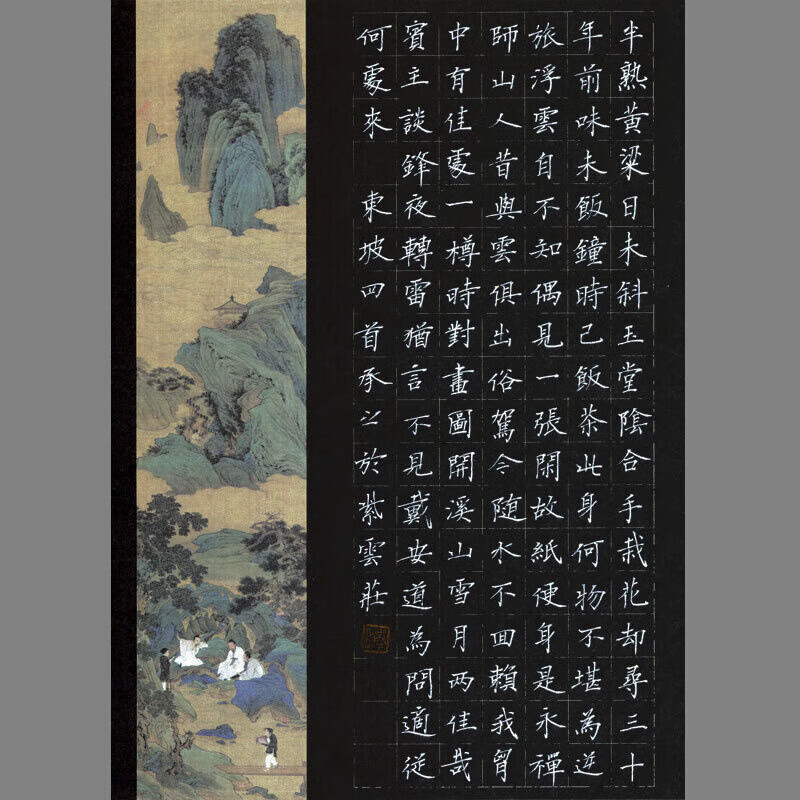 半熟黃粱日未斜玉堂陰合手栽花却尋三十
年前味未飯鐘時已飯茶此身何物不堪為逆
旅浮雲自不知偶見一張閑故紙便身是永禪
師山人昔與雲俱出俗駕今随水不回賴我胷
中有佳處一樽時對畫圖開溪山雪月两佳哉
賓主談鋒夜轉雷猶言不見戴安道為問適從
何處來 東坡四首承之於紫雲莊